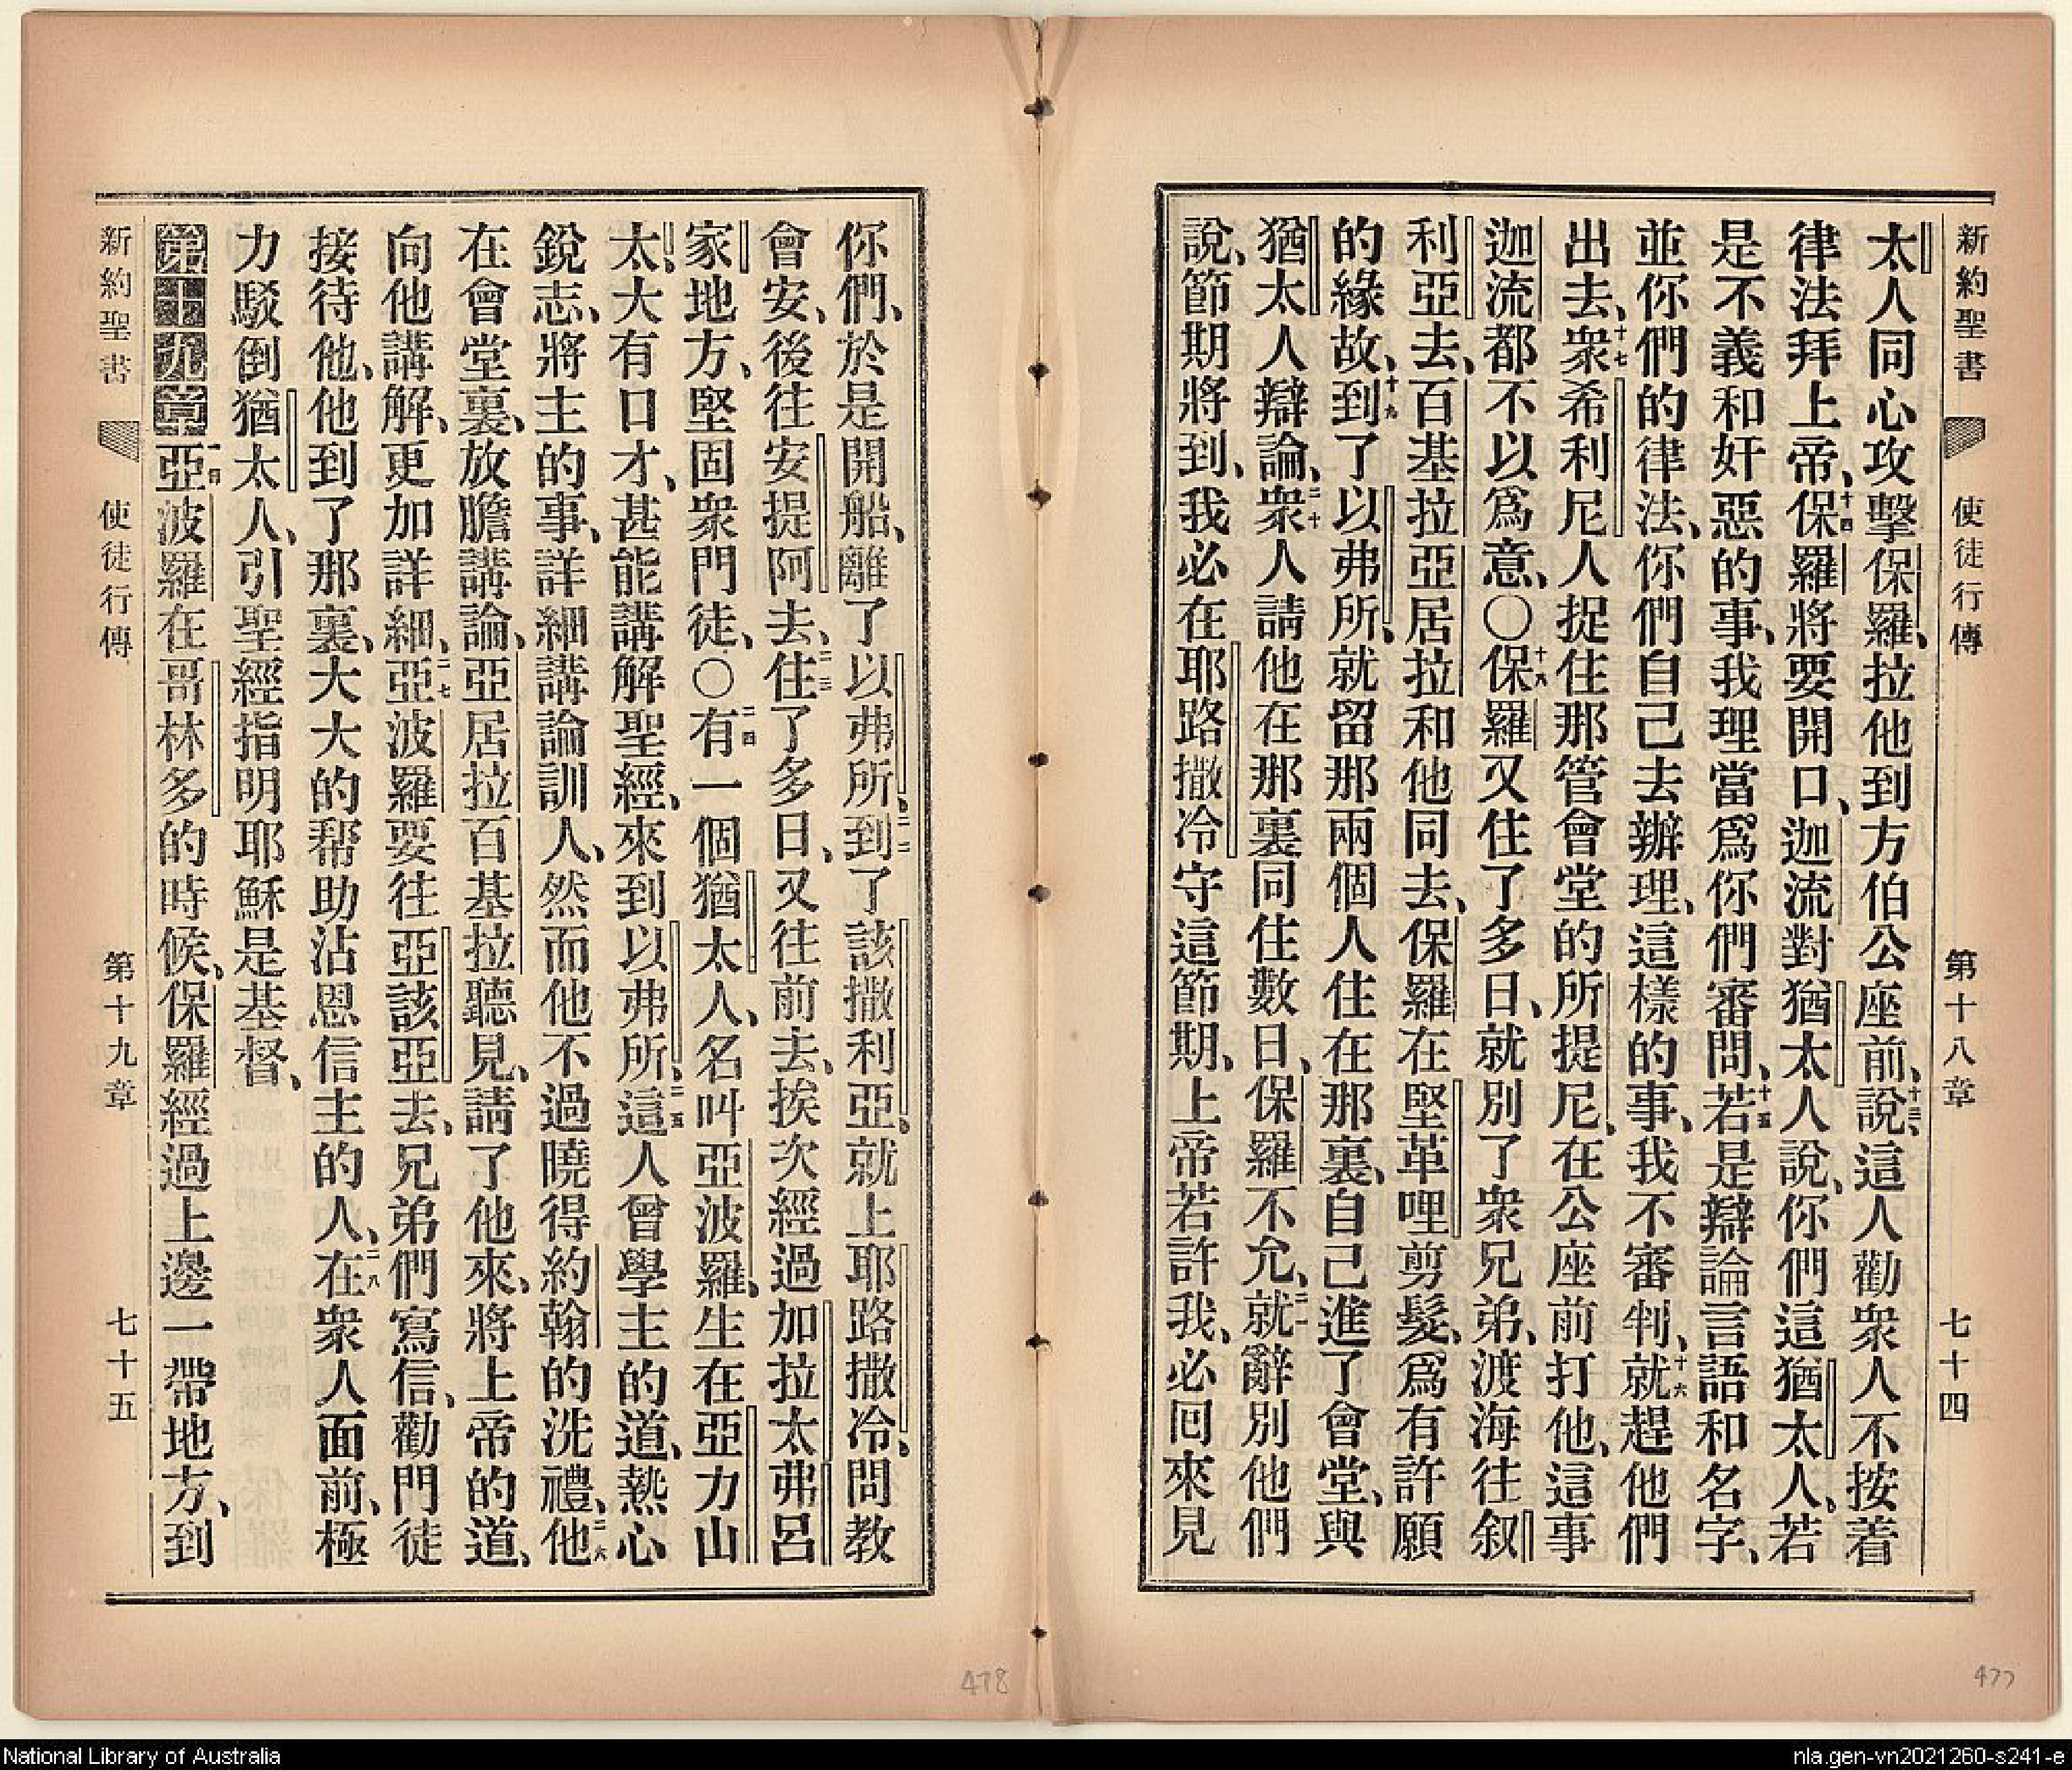 新約聖書 使徒行傳 第十八章 七十四
太人同心攻擊保羅、拉他到方伯公座前、十三說、這人勸衆人不按着
律法拜上帝、十四保羅將要開口、迦流對猶太人說、你們這猶太人、若
是不義和奸惡的事、我理當爲你們審問、十五若是辯論言語和名字、
並你們的律法、你們自己去辦理、這樣的事、我不審判、十六就趕他們
出去、十七衆希利尼人捉住那管會堂的所提尼、在公座前打他、這事
迦流都不以爲意、〇十八保羅又住了多日、就別了衆兄弟、渡海往叙
利亞去、百基拉亞居拉和他同去、保羅在堅革哩剪髮、爲有許願
的緣故、十九到了以弗所、就留那兩個人住在那裏、自己進了會堂、與
猶太人辯論、二十衆人請他在那裏同住數日、保羅不允、二一就辭別他們
說、節期將到、我必在耶路撒冷守這節期、上帝若許我、必回來見
你們、於是開船、離了以弗所、二二到了該撒利亞、就上耶路撒冷、問教
會安、後往安提阿去、二三住了多日、又往前去、挨次經過加拉太弗呂
家地方、堅固衆門徒、〇二四有一個猶太人、名叫亞波羅、生在亞力山
太、大有口才、甚能講解聖經、來到以弗所、二五這人曾學主的道、熱心
銳志、將主的事、詳細講論訓人、然而他不過曉得約翰的洗禮、二六他
在會堂裏、放膽講論、亞居拉百基拉聽見、請了他來、將上帝的道、
向他講解、更加詳細、二七亞波羅要往亞該亞去、兄弟們寫信、勸門徒
接待他、他到了那裏、大大的帮助沾恩信主的人、二八在衆人面前、極
力駁倒猶太人、引聖經指明耶穌是基督、
第十九章 一節亞波羅在哥林多的時候、保羅經過上邊一帶地方、到
新約聖書 使徒行傳 第十九章 七十五
478
477
National Library of Australia
nla.gen-vn2021260-s241-e